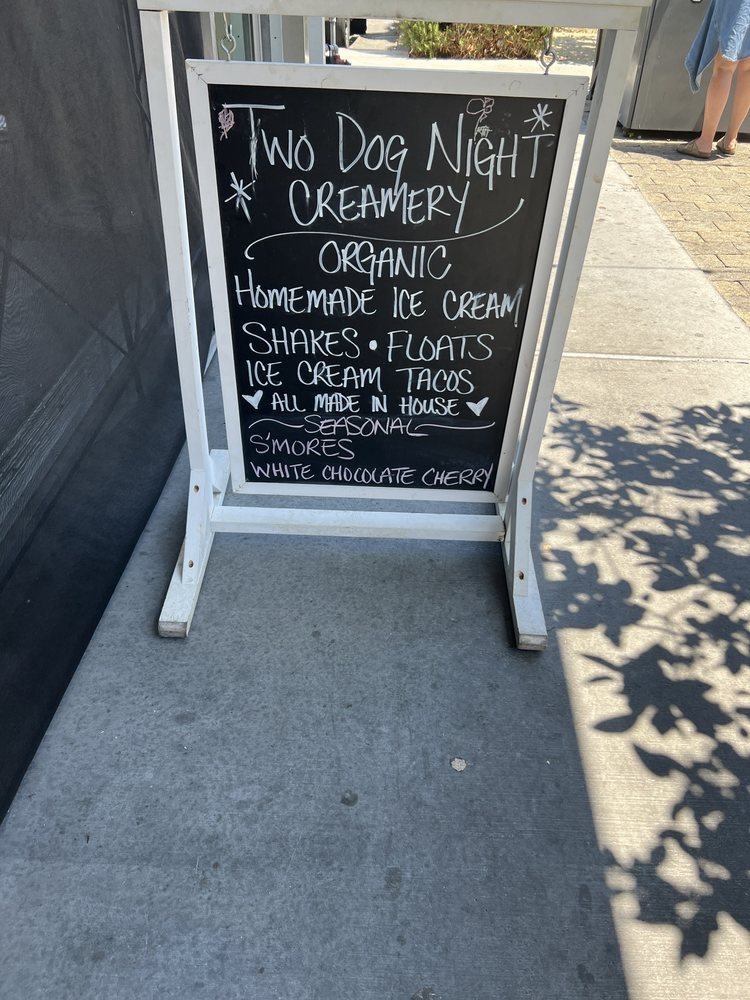 Two Dog Night
Creamery
Organic
Homemade Ice Cream
Shakes • Floats
Ice Cream Tacos
♥ All Made In House ♥
Seasonal
S'mores
White Chocolate Cherry